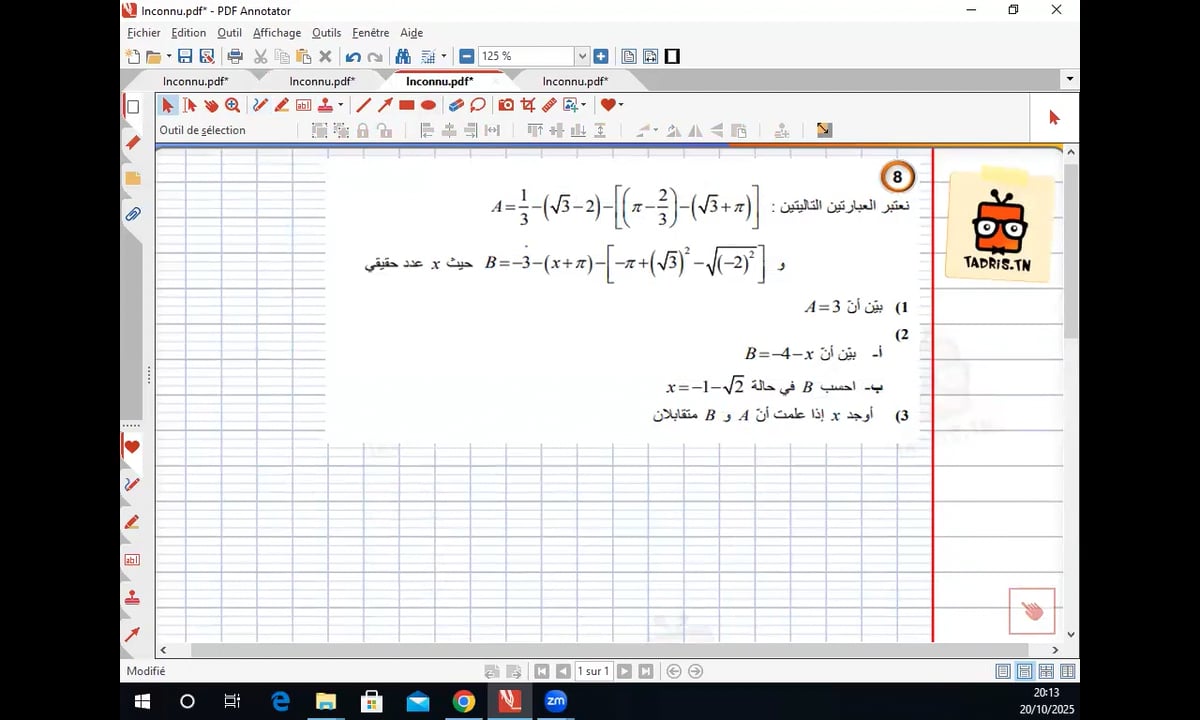 Inconnu.pdf* - PDF Annotator
Fichier Edition Outil Affichage Outils Fenêtre Aide
125 %
Inconnu.pdf* Inconnu.pdf* Inconnu.pdf* Inconnu.pdf*
Outil de sélection
8
نعتبر العبارتين التاليتين : A=\frac{1}{3}-(√3-2)-[(π-\frac{2}{3})-(√3+π)]
و B=-3-(x+π)-[-π+(√3)²-√(-2)²] حيث x عدد حقيقي
TADRIS.TN
1) بيّن أنّ A=3
2)
أ- بيّن أنّ B=-4-x
ب- احسب B في حالة x=-1-√2
3) أوجد x إذا علمت أنّ A و B متقابلان
Modifié
1 sur 1
zm
20:13
20/10/2025